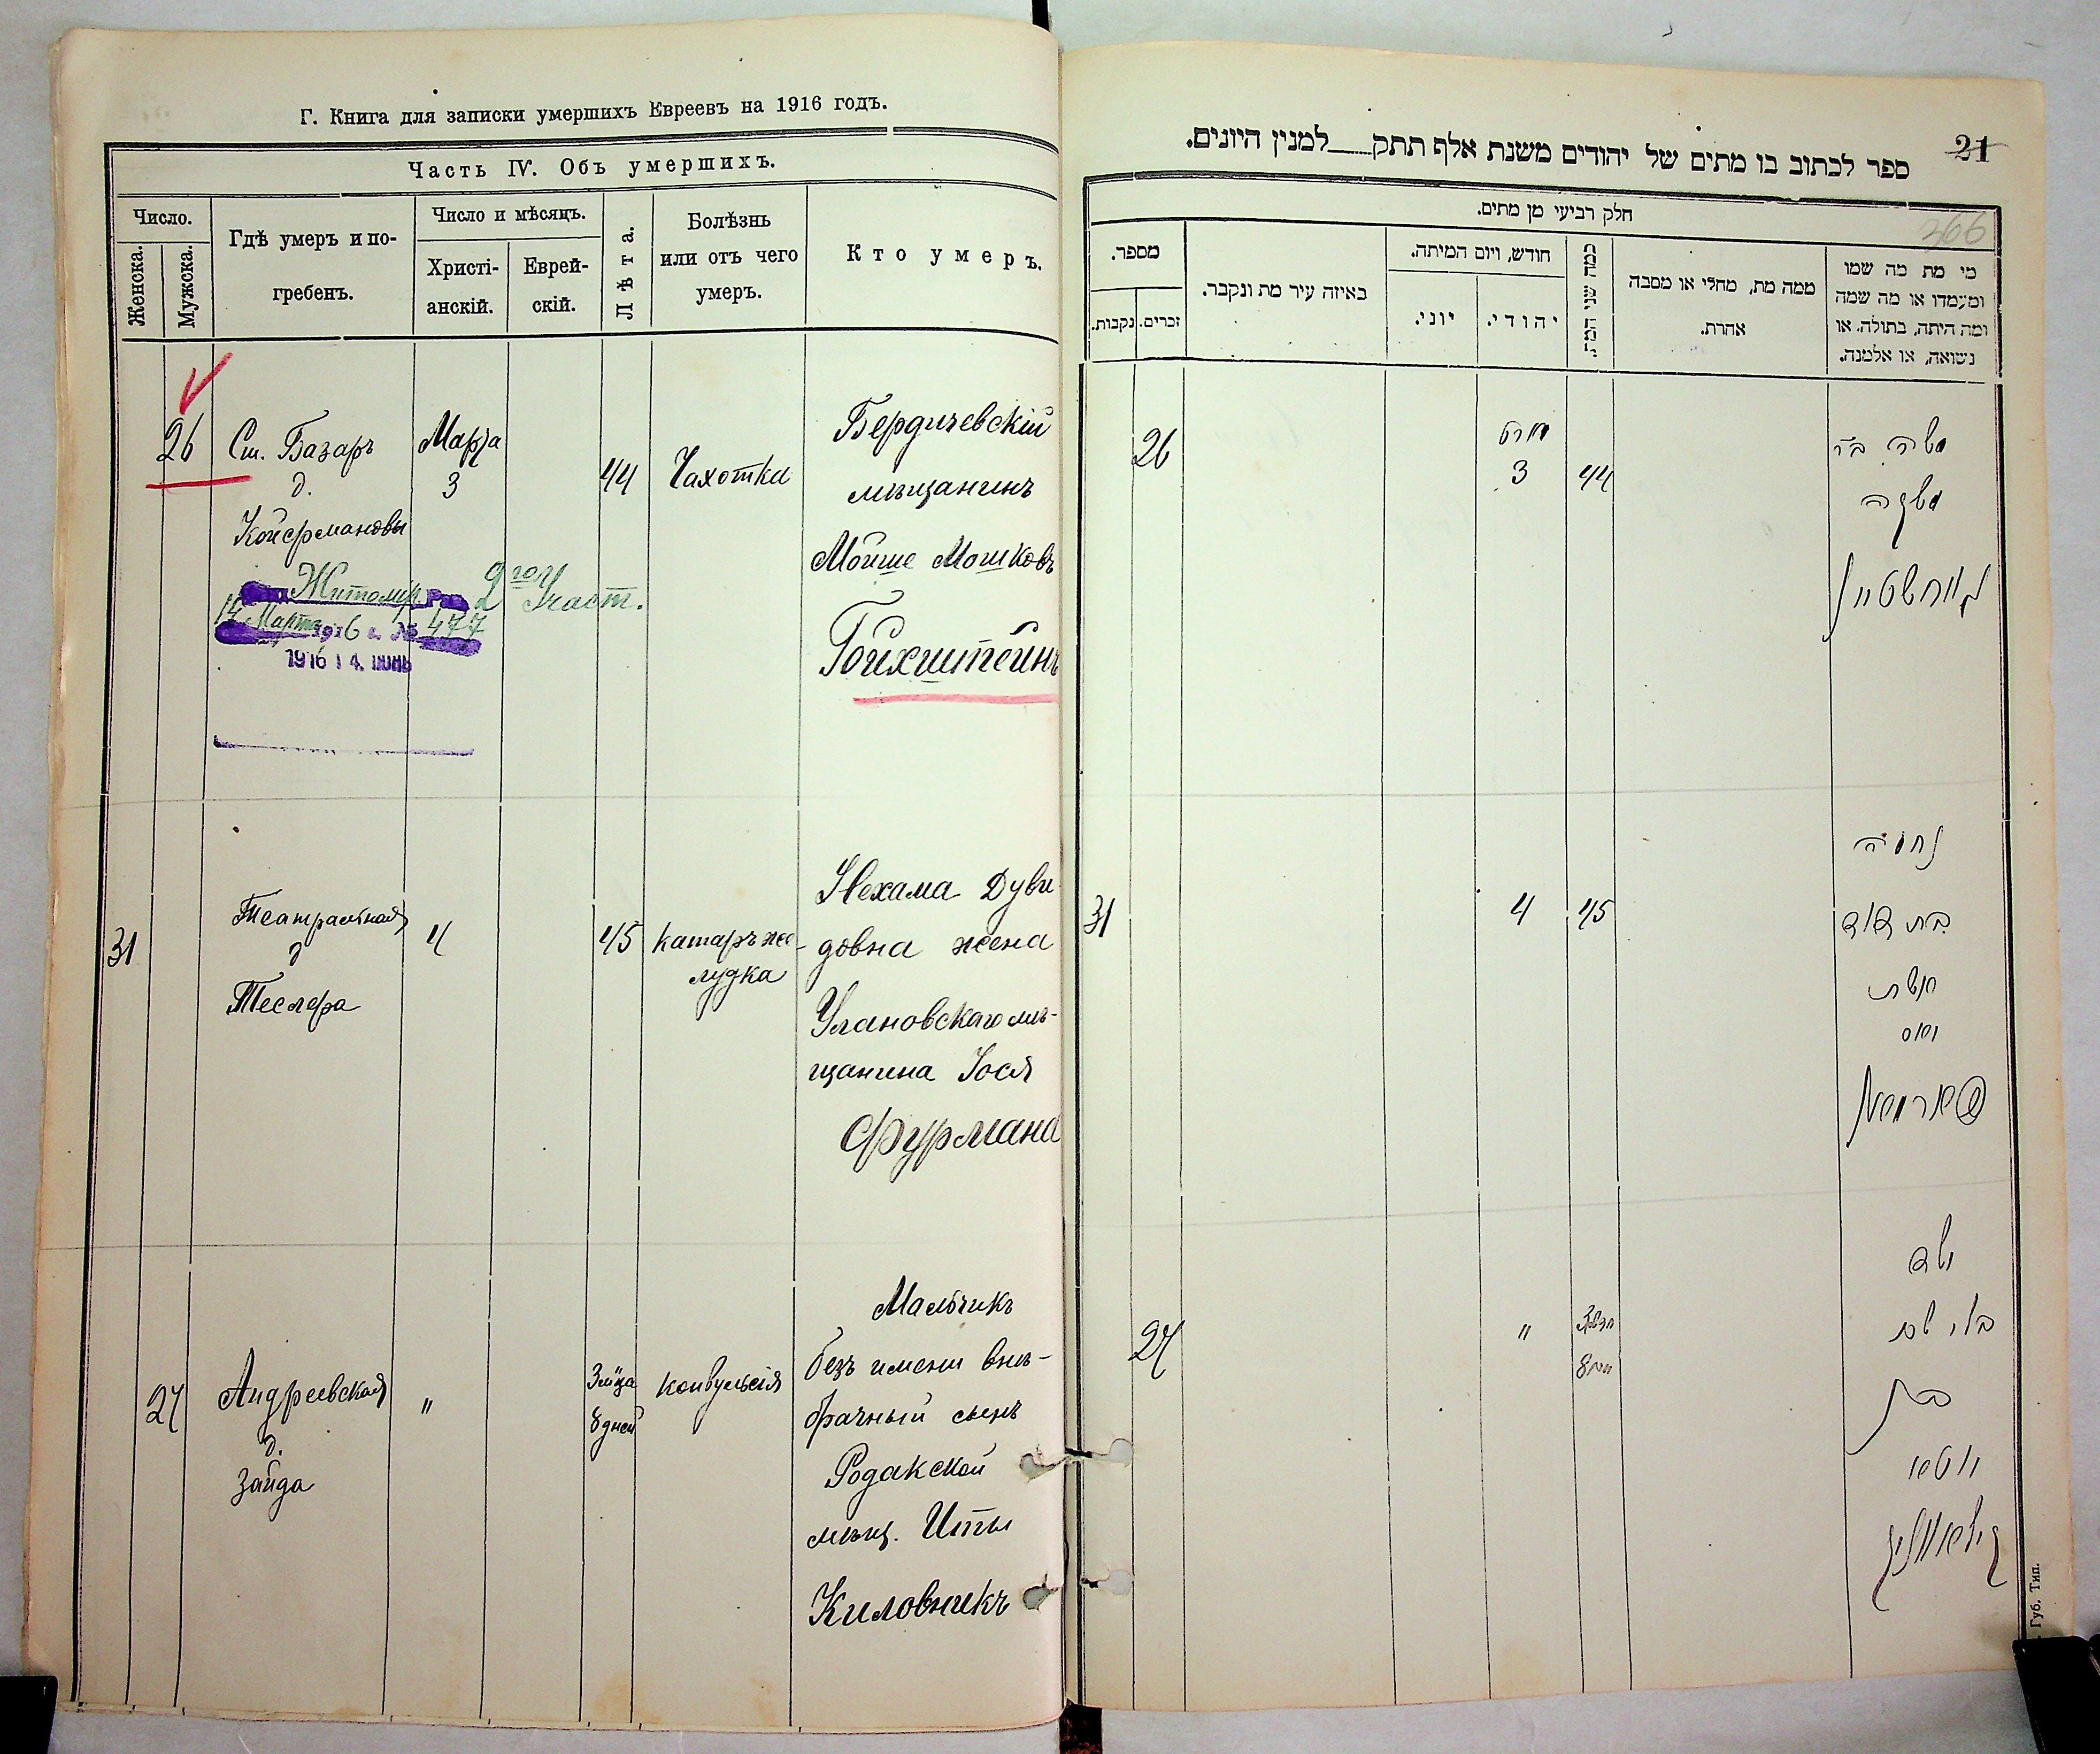 Г. Книга для записки умершихъ Евреевъ на 1916 годъ.
Часть IV. Объ умершихъ.
Число.
Женска.
Мужска.
Гдѣ умеръ и по-
гребенъ.
Число и мѣсяцъ.
Христі-
анскій.
Еврей-
скій.
Лѣта.
Болѣзнь
или отъ чего
умеръ.
Кто умеръ.
26
Ст. Базаръ
д.
Койфмановы
Марта
3
44
Чахотка
Бердичевскій
мѣщанинъ
Мойше Мошковъ
Гойхштейнъ
Житомир. Рав. 2го Участ.
14 Марта 1916 г. № 477
1916 14. ІЮНЬ
31
Театральная
д
Теслера
4
45
катаръ же-
лудка
Нехама Дуви-
довна жена
Улановскаго мѣ-
щанина Іося
Фурмана
27
Андреевская
д.
Зайда
"
3 мѣца
8 дней
конвульсія
Мальчикъ
безъ имени внѣ-
брачный сынъ
Родакской
мѣщ. Иты
Киловникъ
21
366
ספר לכתוב בו מתים של יהודים משנת אלף תתק למנין היונים.
חלק רביעי מן מתים.
מספר.
נקבות.
זכרים.
באיזה עיר מת ונקבר.
חודש, ויום המיתה.
יוני.
יהודי.
כמה שני המת.
ממה מת, מחלי או מסבה
אחרת.
מי מת מה שמו
ומעמדו או מה שמה
ומה היתה, בתולה. או
נשואה, או אלמנה.
26
מרט
3
44
משה ב"ר
משה
גויחשטיין
31
4
45
נחמה
בת דוד
אשת
יוס
פורמאן
27
"
3
8
ילד
בלי שם
בת
איטא
Губ. Тип.